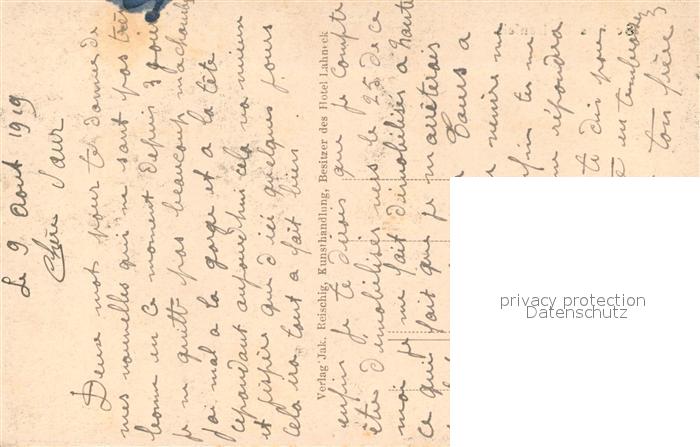 Le 9 Aout 1919
Chère Sœur
Deux mots pour te donner de
mes nouvelles qui ne sont pas très
bonne en ce moment depuis 3 jours
je ne quitte pas beaucoup ma chambre
j'ai mal a la gorge et a la tête
cependant aujourd'hui cela va mieux
et j'espère que d'ici quelques jours
cela ira tout a fait bien
Verlag Jak. Reischig, Kunsthandlung, Besitzer des Hotel Lahneck
enfin je te dirais que je compte
être démobilisé vers le 25 de ce
moi je me fait démobiliser a Nantes
ce qui fait que je m'arrêterais
a Tours a
venire me
enfin tu me
répondra
te dis pour
en t'embrassant
ton frère
privacy protection
Datenschutz